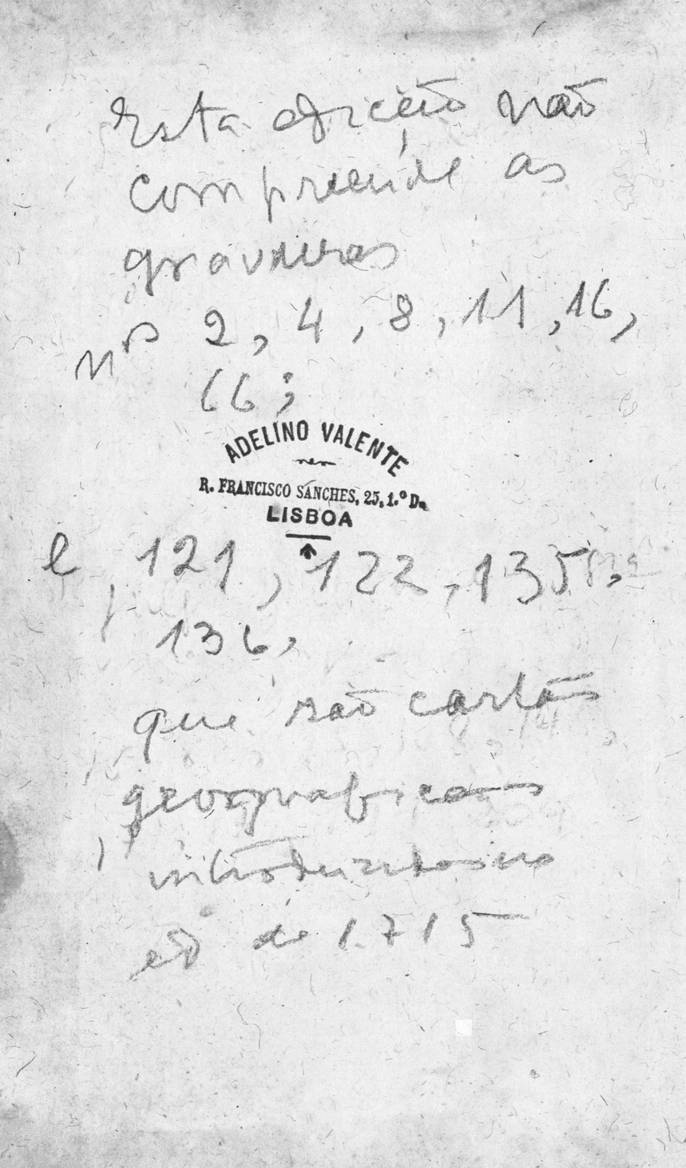 Esta edicção não
compreende as
gravuras
nos 2, 4, 8, 11, 16,
66;
ADELINO VALENTE
R. FRANCISCO SANCHES, 25, 1.º D.
LISBOA
e 121, 122, 135,
136,
que são cartas
geograficas
introduzidas na
ed de 1715